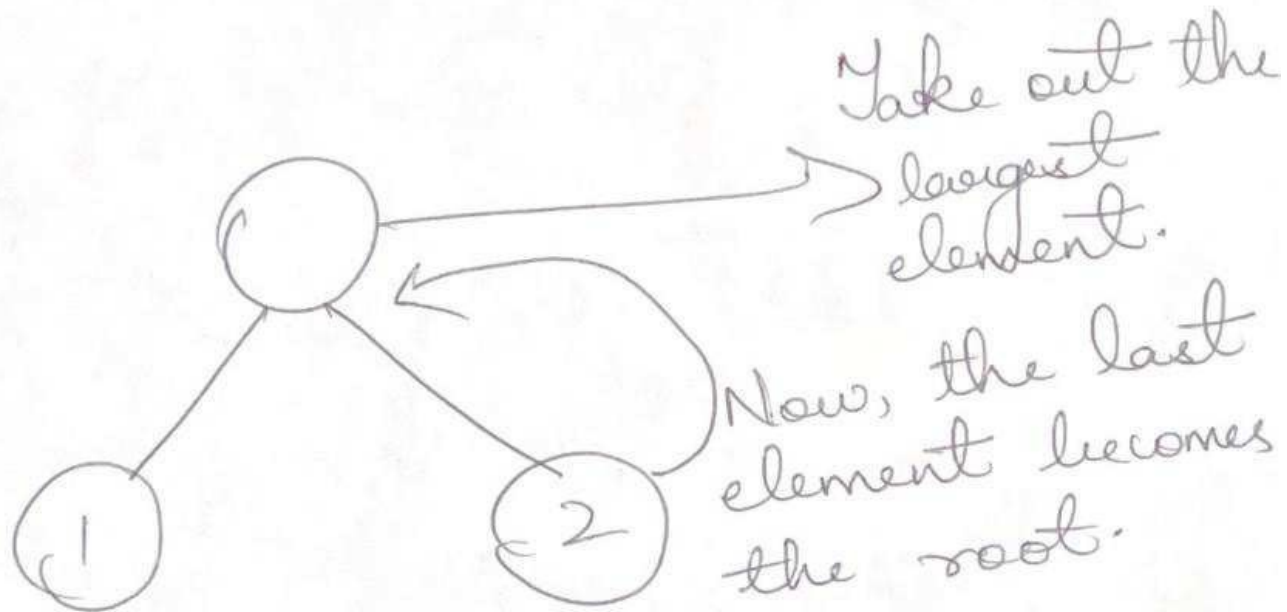 Take out the
largest
element.
Now, the last
element becomes
the root.
1
2